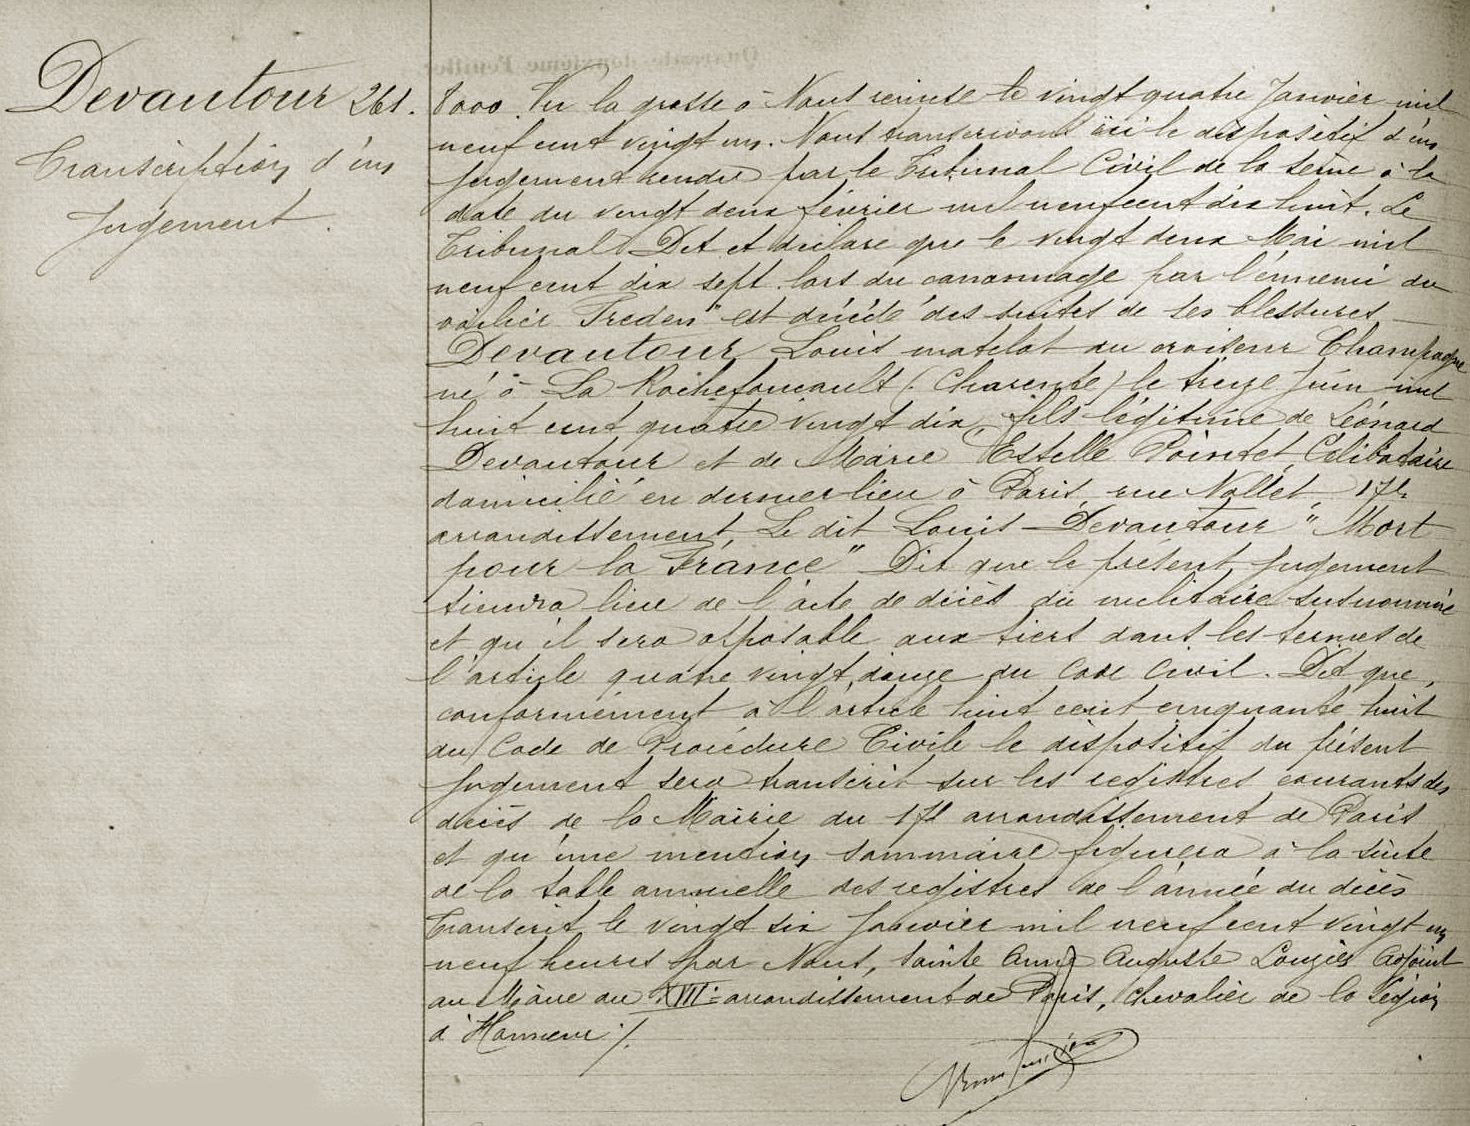 Devautour 261.
Transcription d'un
Jugement.
8000. Vu la grosse à Nous remise le vingt quatre Janvier mil
neuf cent vingt un. Nous transcrivons ici le dispositif d'un
jugement rendu par le Tribunal Civil de la Seine à la
date du vingt deux février mil neuf cent dix huit. Le
Tribunal Dit et déclare que le vingt deux Mai mil
neuf cent dix sept lors du canonnage par l'ennemi du
voilier Treden" est décédé des suites de ses blessures
Devautour Louis matelot au croiseur Champagne
né à La Rochefoucault (Charente) le treize Juin mil
huit cent quatre vingt dix, fils légitime de Léonard
Devautour et de Marie Estelle Pointet, Célibataire
domicilié en dernier lieu à Paris, rue Nollet, 17e
arrondissement, Le dit Louis Devautour "Mort
pour la France" Dit que le présent Jugement
tiendra lieu de l'acte de décès du militaire susnommé
et qu'il sera opposable aux tiers dans les termes de
l'article quatre vingt douze du Code Civil. Dit que,
conformément à l'article huit cent cinquante huit
du Code de Procédure Civile le dispositif du présent
Jugement sera transcrit sur les registres courants des
décès de la Mairie du 17e arrondissement de Paris
et qu'une mention sommaire figurera à la suite
de la table annuelle des registres de l'année du décès
Transcrit le vingt six Janvier mil neuf cent vingt un
neuf heures par Nous, Sainte Anne Auguste Louzier Adjoint
au Maire du XVIIe arrondissement de Paris, Chevalier de la Légion
d'Honneur ./.